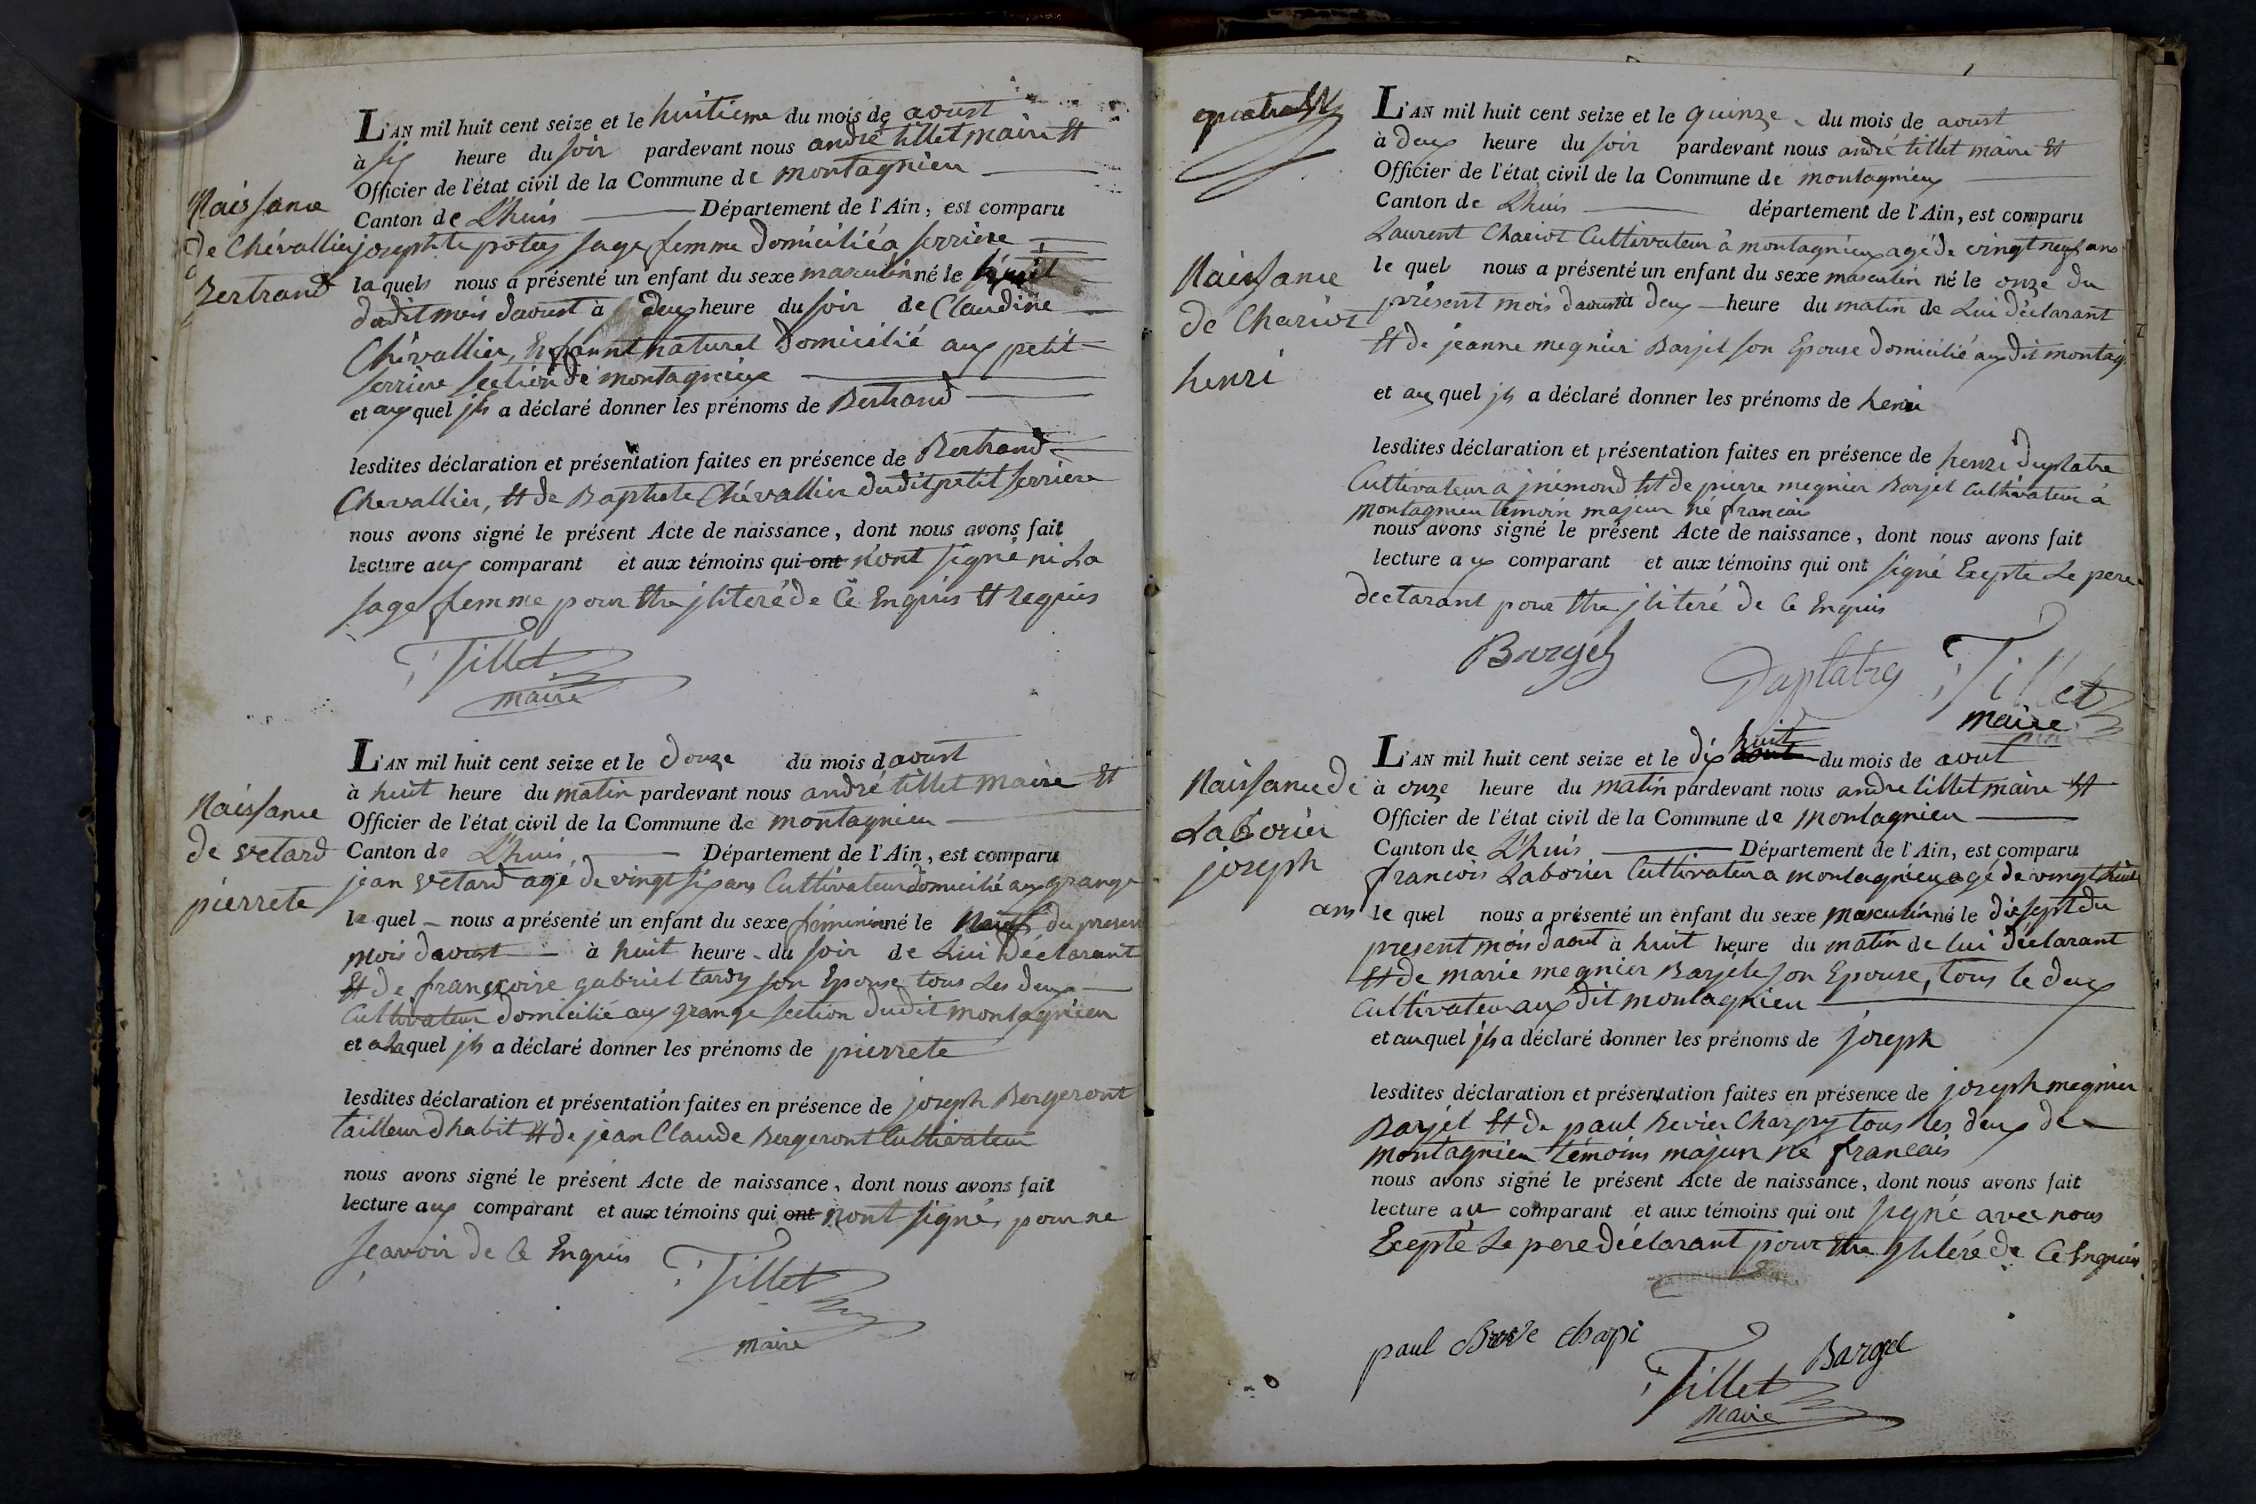 L'AN mil huit cent seize et le huitieme du mois de aoust
à six heure du soir pardevant nous andré tillet maire et
Officier de l'état civil de la Commune de montagnieu
Canton de L'huis Département de l'Ain, est comparu
Naissance
de Chévallier
Bertrand
josephte potey sage femme domicilié a serriere
laquels nous a présenté un enfant du sexe masculin né le
dudit mois daoust à deux heure du soir de Claudine
Chévallier, Enfannt naturel domicilié aux petit
serriere section de montagnieux
et aux quel jls a déclaré donner les prénoms de Bertrand
lesdites déclaration et présentation faites en présence de Bertrand
Chevallier, et de Baptiste Chévallier dudit petit serriere
nous avons signé le présent Acte de naissance, dont nous avons fait
lecture aux comparant et aux témoins qui ont n'ont signé ni La
sage femme pour etre jliteré de Ce Enquis et requis
Tillet
maire
L'AN mil huit cent seize et le douze du mois d aoust
à huit heure du matin pardevant nous andré tillet maire et
Officier de l'état civil de la Commune de montagnieu
Canton de L'huis Département de l'Ain, est comparu
Naissance
de vetard
pierrete
jean vetard agé de vingt six ans Cultivateur domicilié aux grange
le quel nous a présenté un enfant du sexe féminin né le neuf du present
mois daoust à huit heure du soir de Lui Déclarant
et de françoise gabriel tardy son Epouse tous Les deux
Cultivateur domicilié aux grange section dudit montagnieu
et a laquel jls a déclaré donner les prénoms de pierrete
lesdites déclaration et présentation faites en présence de joseph Bergeront
tailleur dhabit et de jean Claude Bergeront Cultivateur
nous avons signé le présent Acte de naissance, dont nous avons fait
lecture aux comparant et aux témoins qui ont n'ont signés pour ne
sçavoir de Ce Enquis
Tillet
maire
L'AN mil huit cent seize et le quinze du mois de aoust
à deux heure du soir pardevant nous andré tillet maire et
Officier de l'état civil de la Commune de montagnieux
Canton de L'huis département de l'Ain, est comparu
Naissance
de Chariot
henri
Laurent Chariot Cultivateur à montagnieux agé de vingt neuf ans
le quel nous a présenté un enfant du sexe masculin né le onze du
présent mois daoust à deux heure du matin de Lui déclarant
et de jeanne megnier Barjel son Epouse domicilié aux dit montag.
et aux quel jls a déclaré donner les prénoms de henri
lesdites déclaration et présentation faites en présence de henri duplatre
Cultivateur à jnémond et de pierre megnier Barjel Cultivateur à
montagnieu temoin majeur né francais
nous avons signé le présent Acte de naissance, dont nous avons fait
lecture aux comparant et aux témoins qui ont signé Exepte Le pere
declarant pour etre jliteré de Ce Enquis
Barjel
Duplatre
Tillet
maire
L'AN mil huit cent seize et le dix huit du mois de aout
à onze heure du matin pardevant nous andre tillet maire et
Officier de l'état civil de la Commune de montagnieu
Canton de L'huis Département de l'Ain, est comparu
Naissance de
Laborier
joseph
francois Laborier Cultivateur a montagnieux agé de vingt huit
ans le quel nous a présenté un enfant du sexe masculin né le dix sept du
present mois daout à huit heure du matin de lui déclarant
et de marie megnier Barjel son Epouse, tous le deux
Cultivateur aux dit montagnieu
et au quel jls a déclaré donner les prénoms de joseph
lesdites déclaration et présentation faites en présence de joseph megnier
Barjel et de paul Charpy tous les deux de
montagnieu témoins majeur né francais
nous avons signé le présent Acte de naissance, dont nous avons fait
lecture au comparant et aux témoins qui ont signé avec nous
Exepté Le pere déclarant pour etre jliteré de Ce Enquis
paul chapi
Bargel
Tillet
maire